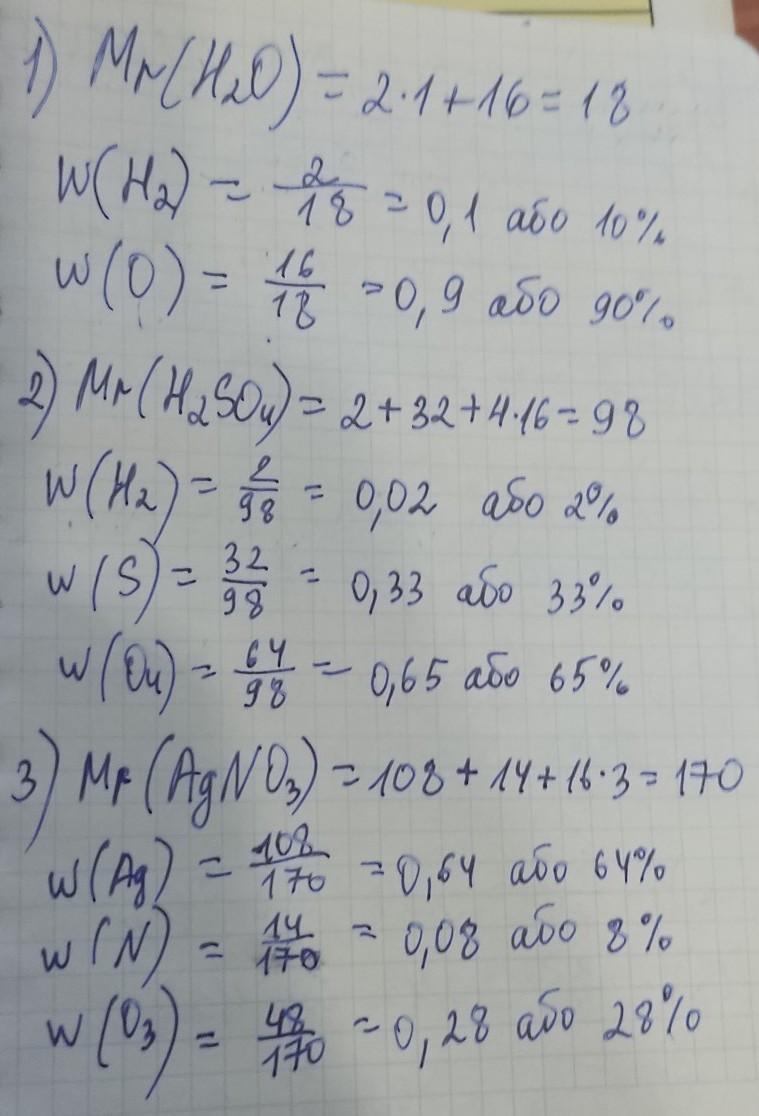 1) Mr(H₂O) = 2·1+16 = 18
W(H₂) = 2/18 = 0,1 або 10%
W(O) = 16/18 = 0,9 або 90%
2) Mr(H₂SO₄) = 2+32+4·16 = 98
W(H₂) = 2/98 = 0,02 або 2%
W(S) = 32/98 = 0,33 або 33%
W(O₄) = 64/98 = 0,65 або 65%
3) Mr(AgNO₃) = 108+14+16·3 = 170
W(Ag) = 108/170 = 0,64 або 64%
W(N) = 14/170 = 0,08 або 8%
W(O₃) = 48/170 = 0,28 або 28%